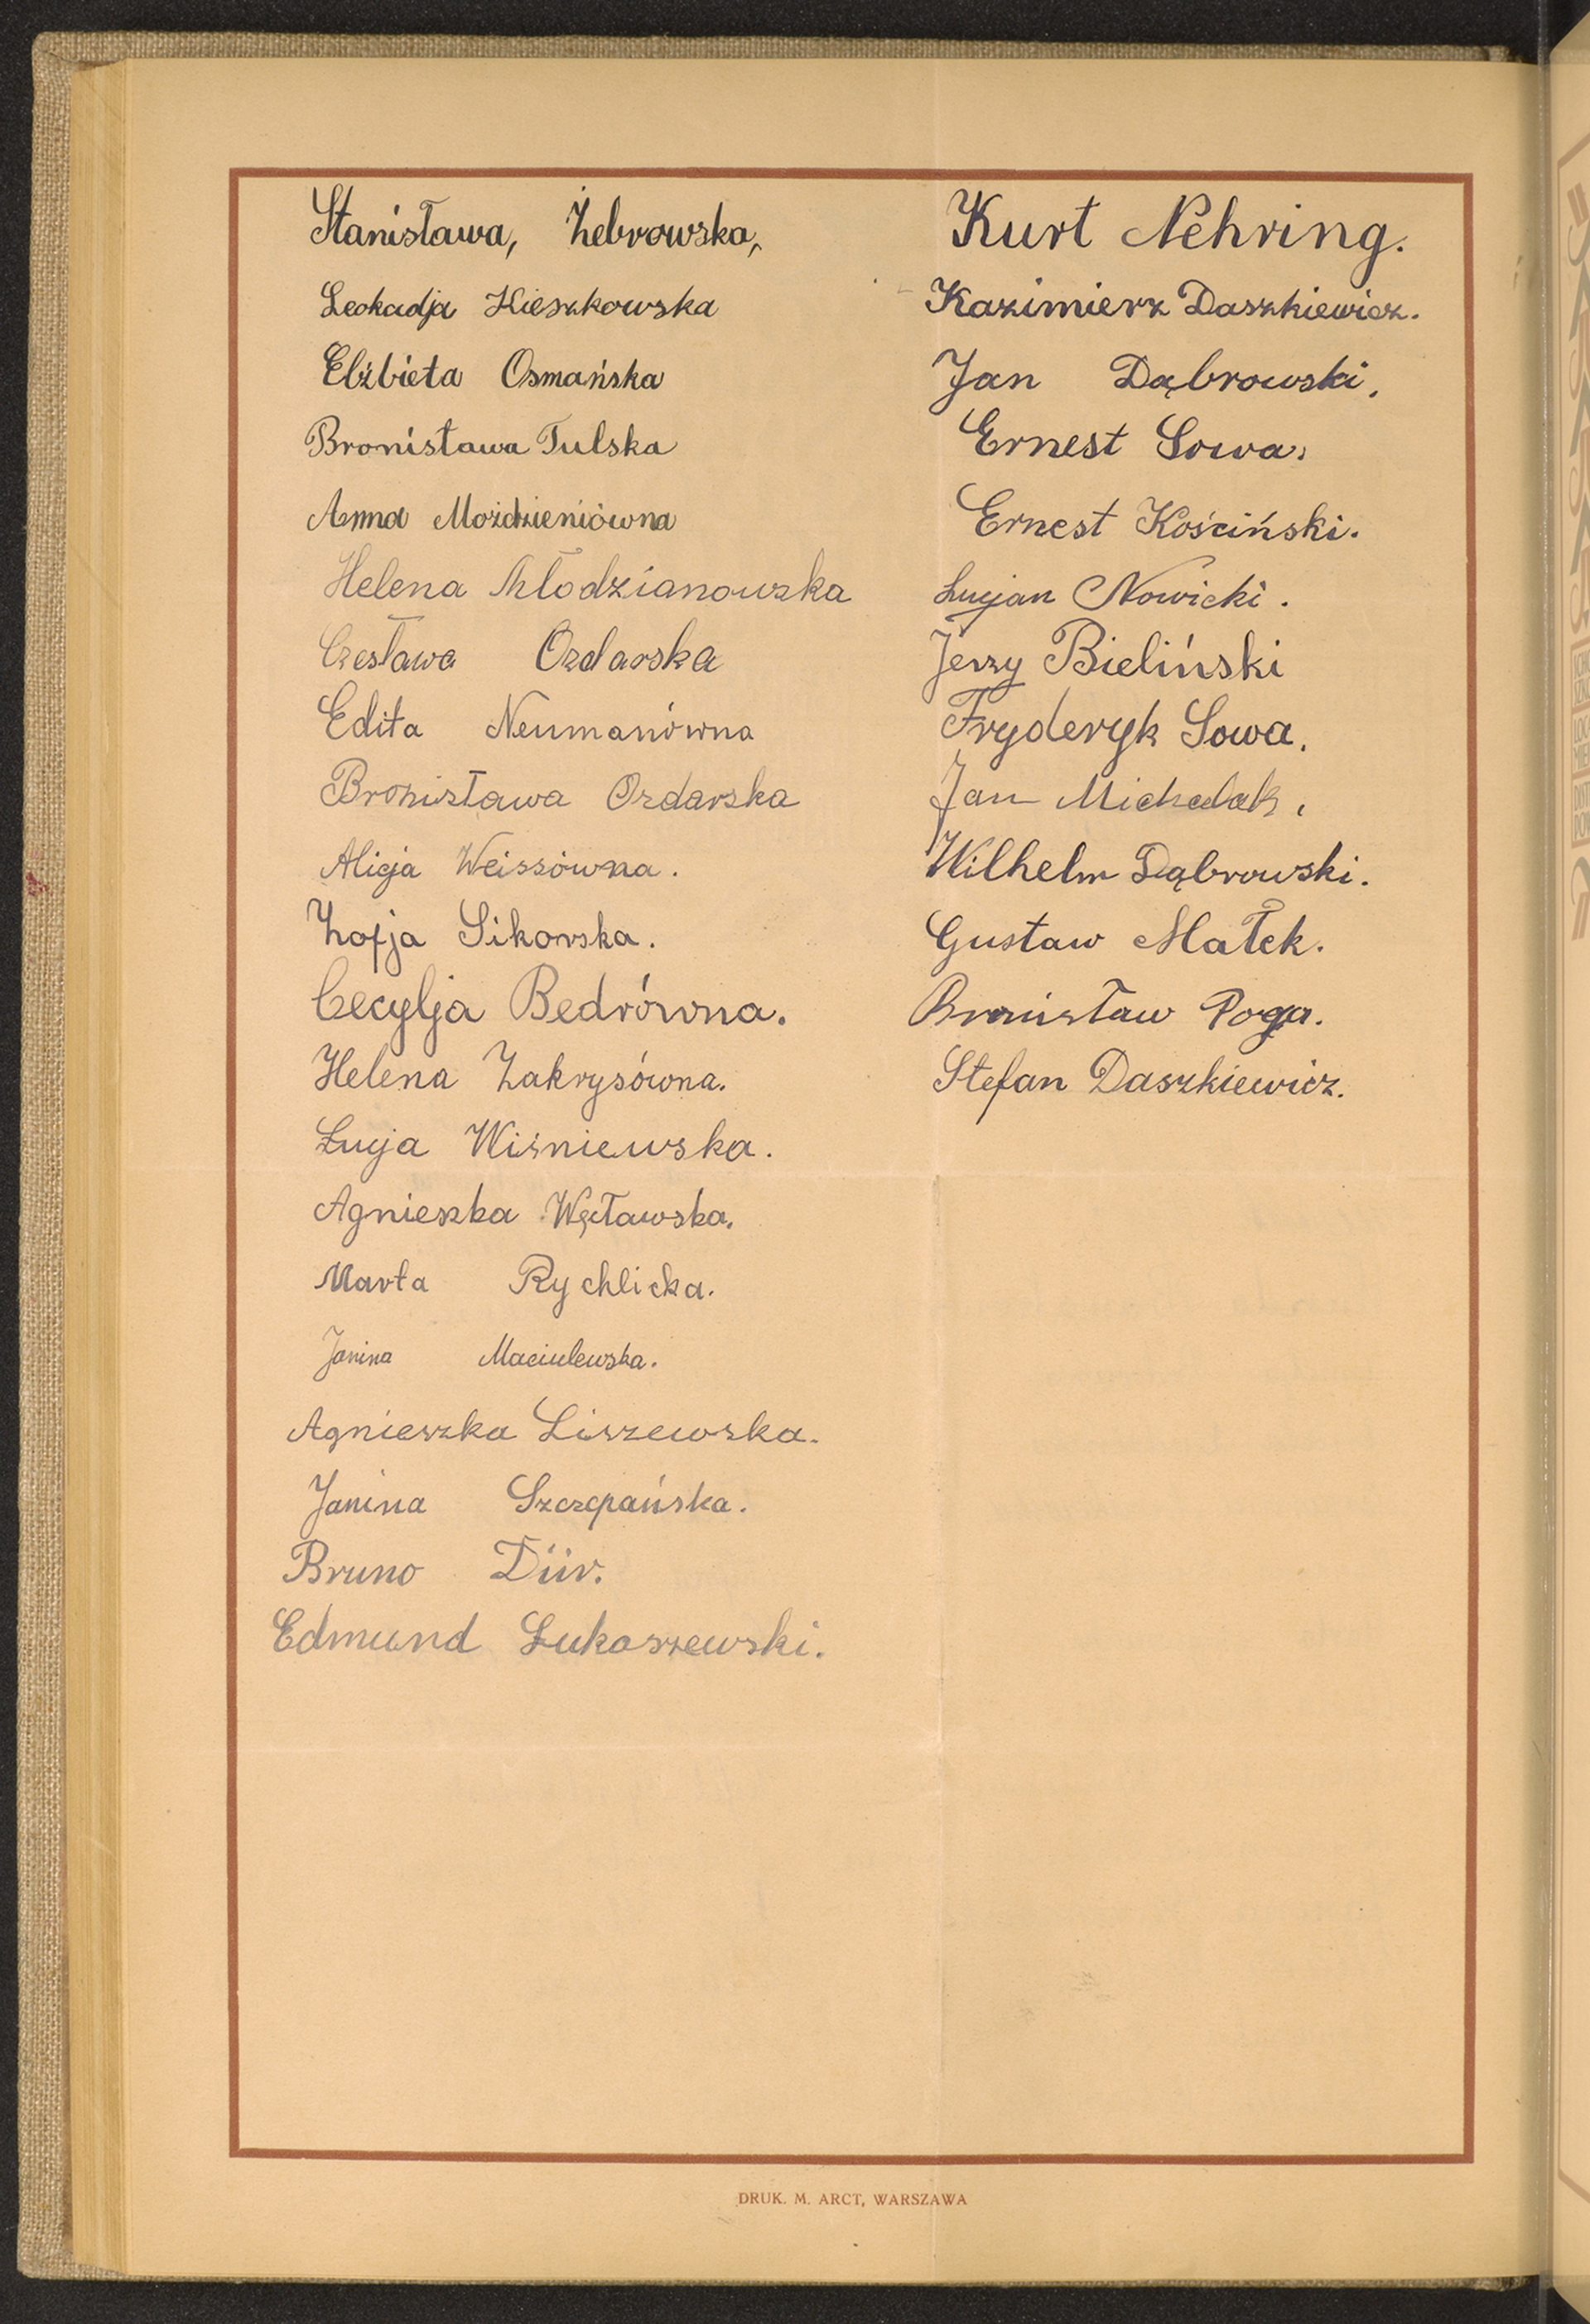 Stanisława, Żebrowska,
Leokadja Kieszkowska
Elżbieta Osmańska
Bronisława Tulska
Anna Moździeniówna
Helena Młodzianowska
Czesława Ozdarska
Edita Neumanówna
Bronisława Ozdarska
Alicja Weissówna.
Zofja Sikorska.
Cecylja Bedrówna.
Helena Zakrysówna.
Łucja Wiśniewska.
Agnieszka Węcławska.
Marta Rychlicka.
Janina Maciulewska.
Agnieszka Liszewska.
Janina Szczepańska.
Bruno Dür.
Edmund Łukaszewski.
Kurt Nehring.
Kazimierz Daszkiewicz.
Jan Dąbrowski,
Ernest Sowa,
Ernest Kościński.
Lucjan Nowicki.
Jerzy Bieliński
Fryderyk Sowa.
Jan Michalak,
Wilhelm Dąbrowski.
Gustaw Małek.
Bronisław Poga.
Stefan Daszkiewicz.
DRUK. M. ARCT, WARSZAWA